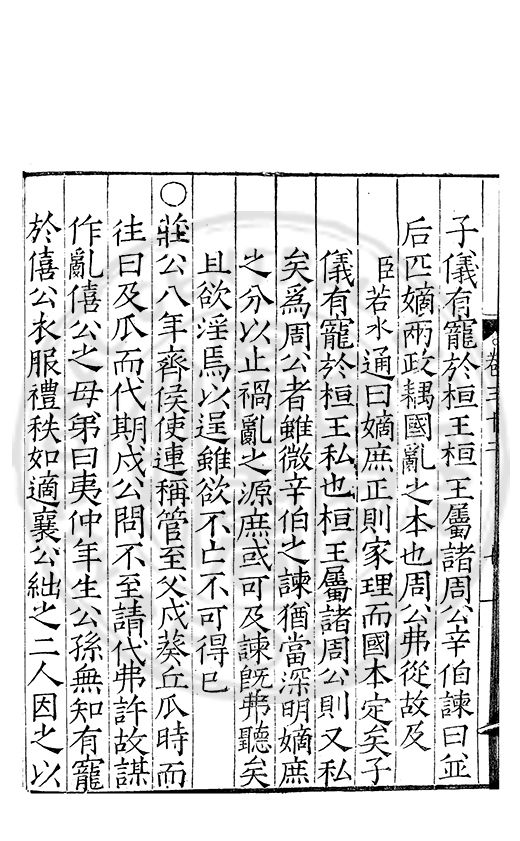 子儀有寵於桓王桓王屬諸周公辛伯諫曰並
后匹嫡兩政耦國亂之本也周公弗從故及
臣若水通曰嫡庶正則家理而國本定矣子
儀有寵於桓王私也桓王屬諸周公則又私
矣為周公者雖微辛伯之諫猶當深明嫡庶
之分以止禍亂之源庶或可及諫旣弗聽矣
且欲淫焉以逞雖欲不亡不可得已
○莊公八年齊侯使連稱管至父戍葵丘瓜時而
往曰及瓜而代期戍公問不至請代弗許故謀
作亂僖公之母弟曰夷仲年生公孫無知有寵
於僖公衣服禮秩如適襄公絀之二人因之以